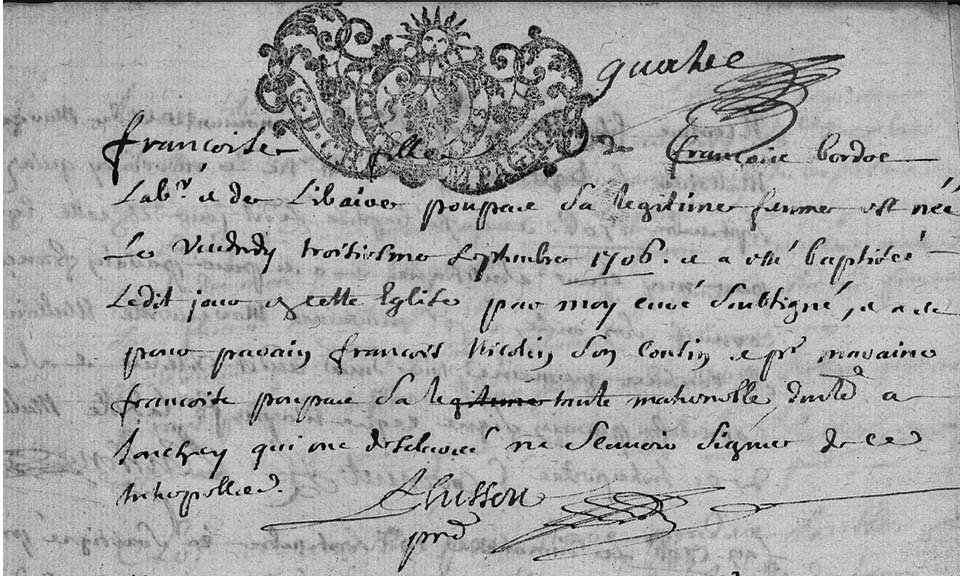 quatre
G.D. CHAMPAGNE
francoise fille de francois bordot
Labr. et de Libaire poupare sa legitime femme est née
Le Vendredy troisiesme septembre 1706. et a esté baptisée
Ledit jour en cette Eglise par moy curé soubsigné, et a eu
pour parain francois Nicolin son cousin et pr. maraine
francoise poupare sa tante maternelle, dmts. a
Jonchery qui ont desclarés ne scauoir signer de ce
interpellés.
Husson
prd